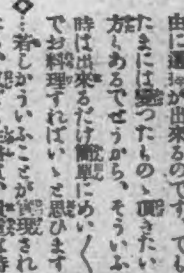 由に運搬が出來るのです。でも
たまには變つたもの、頂きたい
方もあるでせうから、そういふ
時は出來るだけ簡單にめい〱
でお料理すればいゝと思ひます
◇…若しかういふことが實現され